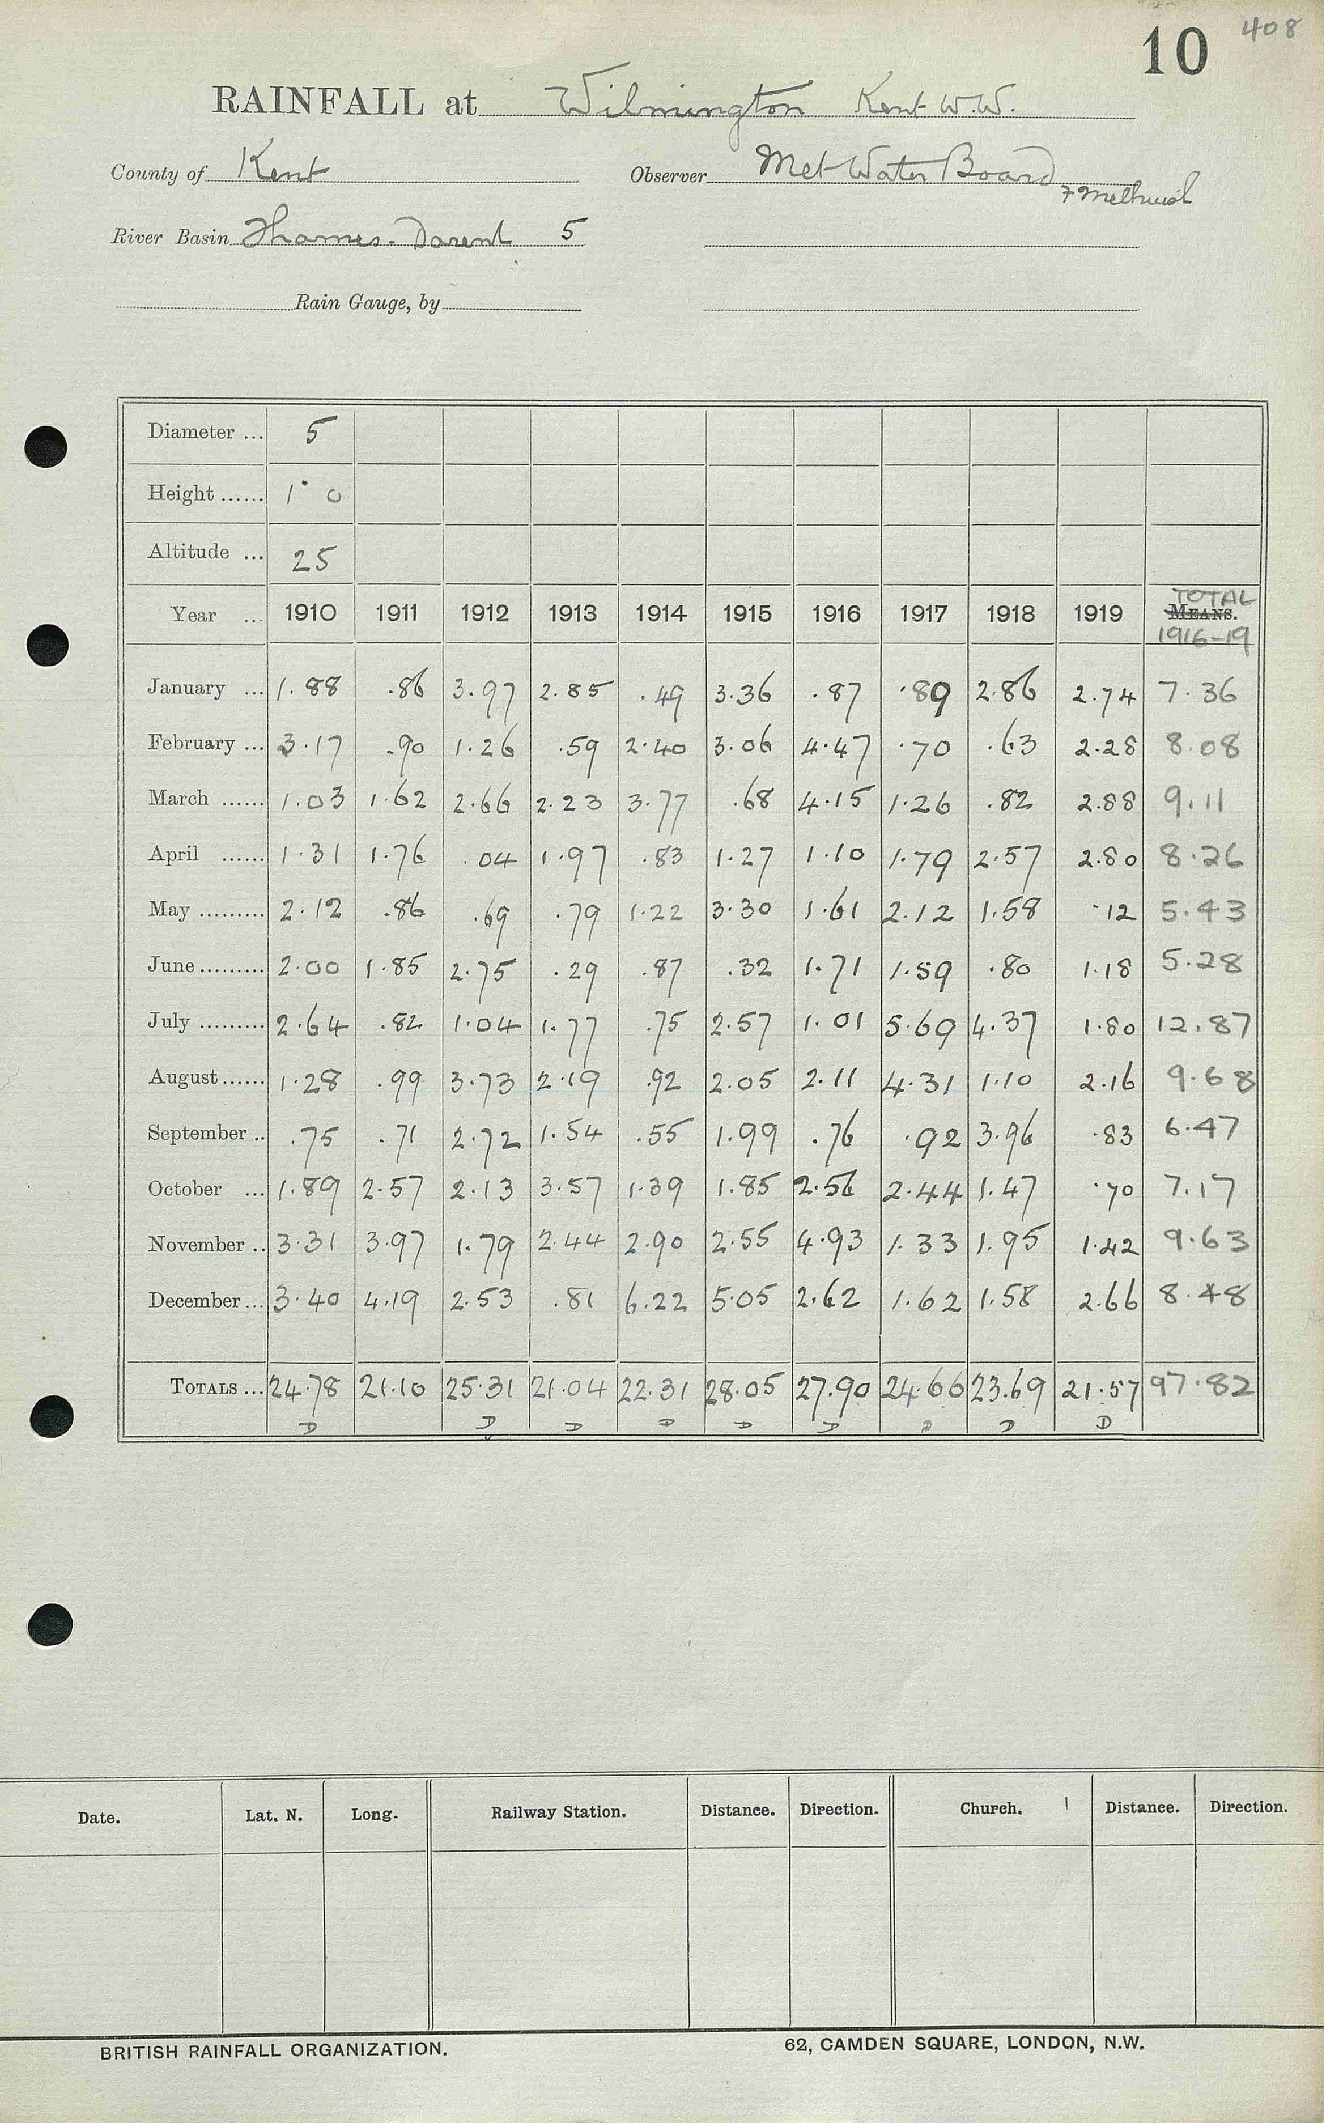 10 408
RAINFALL at Wilmington Kent W.W.
County of Kent Observer Met Water Board
River Basin Thames-Darent 5
Rain Gauge, by
Diameter ... 5
Height ...... 1' 0
Altitude ... 25
TOTAL
Year ... 1910 1911 1912 1913 1914 1915 1916 1917 1918 1919 MEANS.
1916-19
January ... 1.88 .86 3.97 2.85 .49 3.36 .87 .89 2.86 2.74 7.36
February ... 3.17 .90 1.26 .59 2.40 3.06 4.47 .70 .63 2.28 8.08
March ...... 1.03 1.62 2.66 2.23 3.77 .68 4.15 1.26 .82 2.88 9.11
April ...... 1.31 1.76 .04 1.97 .83 1.27 1.10 1.79 2.57 2.80 8.26
May ......... 2.12 .86 .69 .79 1.22 3.30 1.61 2.12 1.58 .12 5.43
June ......... 2.00 1.85 2.75 .29 .87 .32 1.71 1.59 .80 1.18 5.28
July ......... 2.64 .82 1.04 1.77 .75 2.57 1.01 5.69 4.37 1.80 12.87
August ...... 1.28 .99 3.73 2.19 .92 2.05 2.11 4.31 1.10 2.16 9.68
September .. .75 .71 2.72 1.54 .55 1.99 .76 .92 3.96 .83 6.47
October ... 1.89 2.57 2.13 3.57 1.39 1.85 2.56 2.44 1.47 .70 7.17
November .. 3.31 3.97 1.79 2.44 2.90 2.55 4.93 1.33 1.95 1.42 9.63
December ... 3.40 4.19 2.53 .81 6.22 5.05 2.62 1.62 1.58 2.66 8.48
TOTALS ... 24.78 21.10 25.31 21.04 22.31 28.05 27.90 24.66 23.69 21.57 97.82
D D D D D D D D D
Date. Lat. N. Long. Railway Station. Distance. Direction. Church. Distance. Direction.
BRITISH RAINFALL ORGANIZATION. 62, CAMDEN SQUARE, LONDON, N.W.